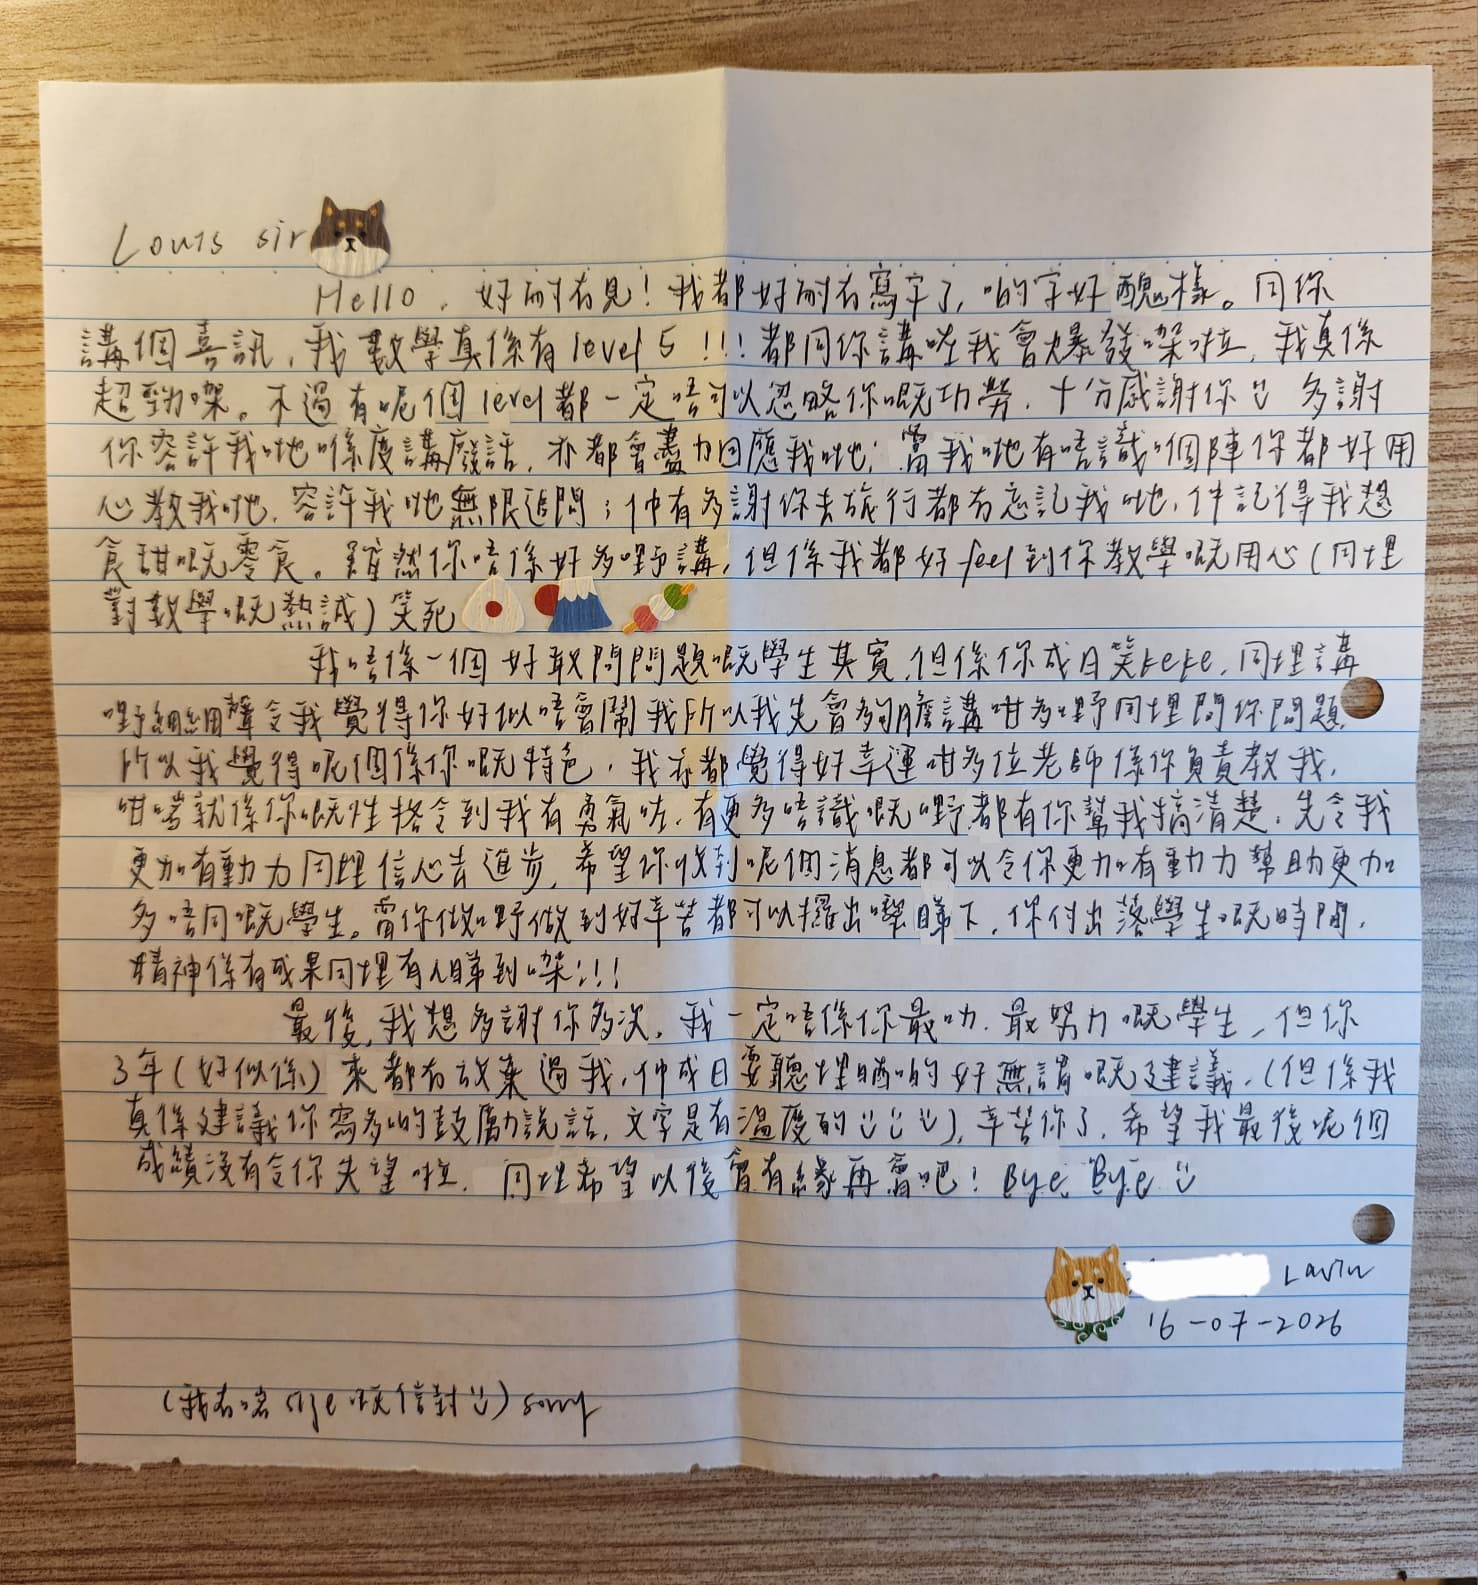 Louis sir
Hello, 好耐冇見！我都好耐冇寫字了，啲字好醜樣。同你
講個喜訊，我數學真係有level 5！！！都同你講咗我會爆發㗎啦，我真係
超勁㗎。不過有呢個level都一定唔可以忽略你嘅功勞，十分感謝你 多謝
你容許我哋喺度講廢話，亦都會盡力回應我哋；當我哋有唔識嗰陣你都好用
心教我哋，容許我哋無限追問；仲有多謝你去旅行都冇忘記我哋，仲記得我想
食甜嘅零食。雖然你唔係好多嘢講，但係我都好feel到你教學嘅用心（同埋
對數學嘅熱誠）笑死
我唔係一個好敢問問題嘅學生其實，但係你成日笑keke，同埋講
嘢細細聲令我覺得你好似唔會鬧我所以我先會夠膽講咁多嘢同埋問你問題，
所以我覺得呢個係你嘅特色，我亦都覺得好幸運咁多位老師係你負責教我，
咁啱就係你嘅性格令到我有勇氣咗，有更多唔識嘅嘢都有你幫我搞清楚，先令我
更加有動力同埋信心去進步，希望你收到呢個消息都可以令你更加有動力幫助更加
多唔同嘅學生。當你做嘢做到好辛苦都可以攞出嚟睇下，你付出落學生嘅時間，
精神係有成果同埋有人睇到㗎！！！
最後，我想多謝你多次，我一定唔係你最叻，最努力嘅學生，但你
3年（好似係）來都冇放棄過我，仲成日要聽埋晒啲好無謂嘅建議，（但係我
真係建議你寫多啲鼓勵說話，文字是有溫度的），辛苦你了，希望我最後呢個
成績沒有令你失望啦，同埋希望以後會有緣再會吧！Bye Bye
Lavin
16-07-2026
（我冇咗 嘅信封）sorry